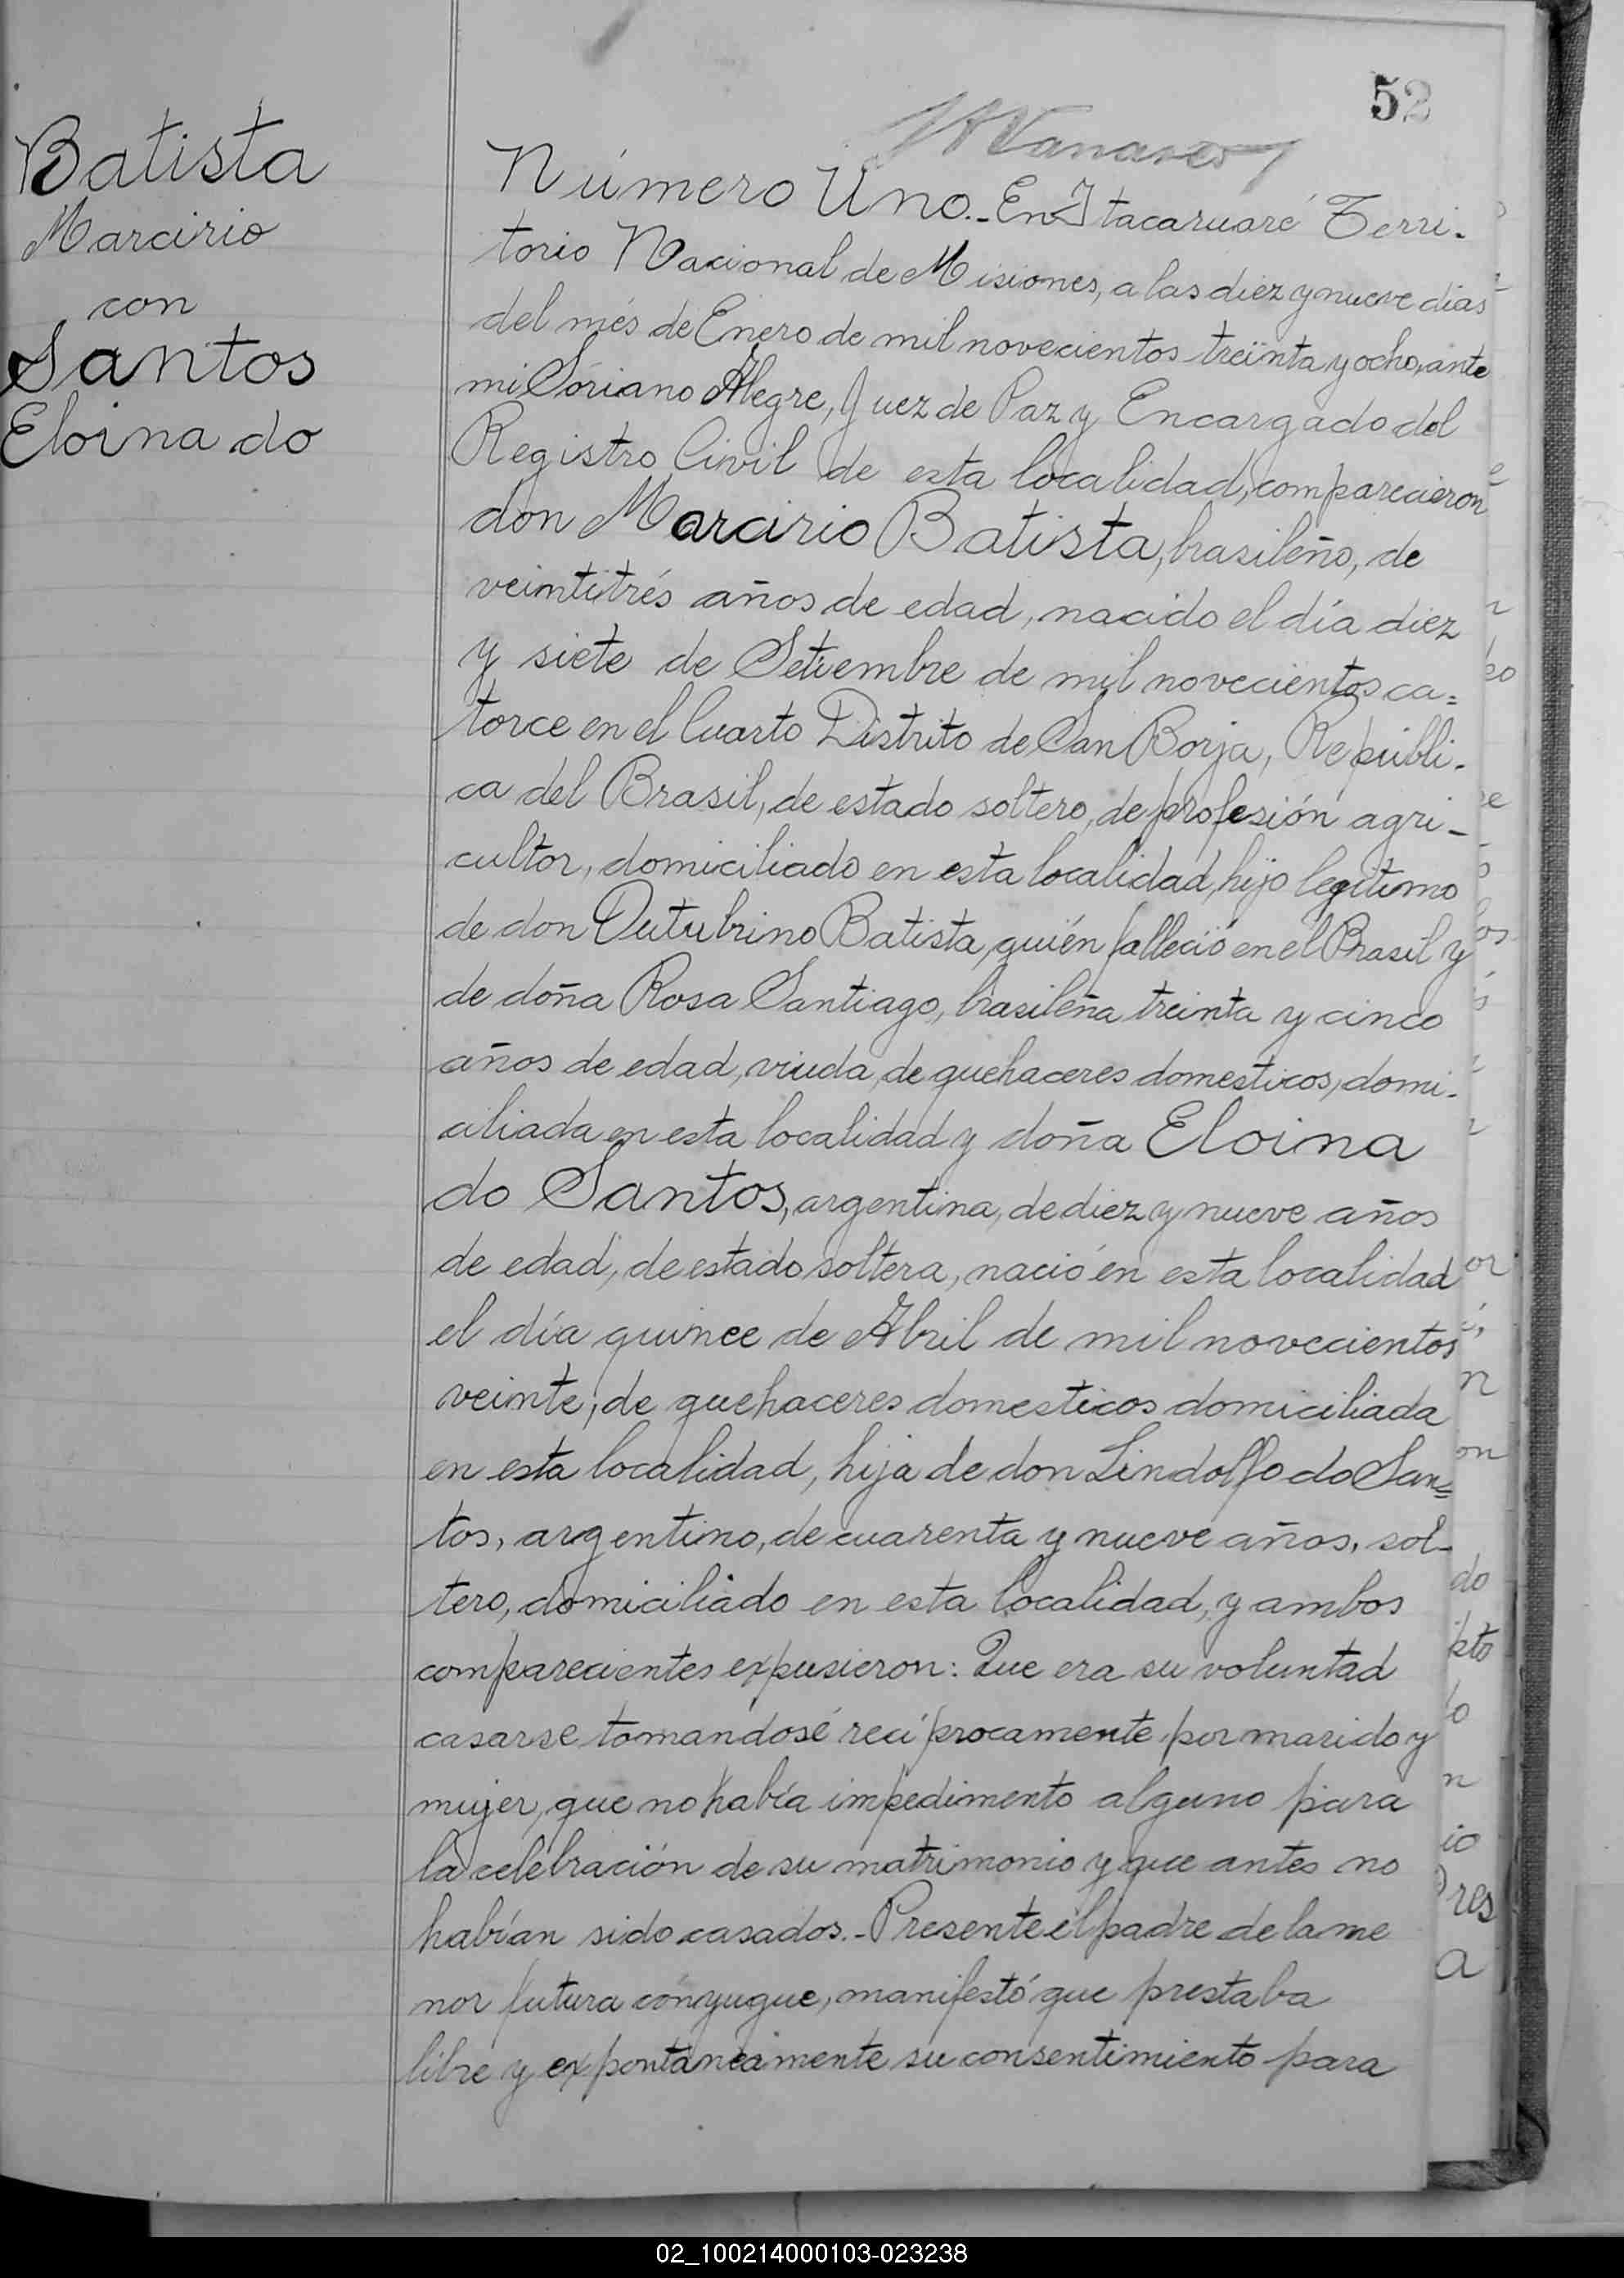 52
Batista
Marcirio
con
Santos
Eloina do
Número Uno.- En Itacaruaré Terri-
torio Nacional de Misiones, a las diez y nueve dias
del més de Enero de mil novecientos treinta y ocho, ante
mi Soriano Alegre, Juez de Paz y Encargado del
Registro Civil de esta localidad, comparecieron
don Marcirio Batista, brasileño, de
veintitrés años de edad, nacido el día diez
y siete de Setiembre de mil novecientos ca=
torce en el Cuarto Distrito de San Borja, Repúbli-
ca del Brasil, de estado soltero, de profesión agri-
cultor, domiciliado en esta localidad, hijo legitimo
de don Outubrino Batista, quién falleció en el Brasil y
de doña Rosa Santiago, brasileña treinta y cinco
años de edad, viuda, de quehaceres domesticos, domi-
ciliada en esta localidad y doña Eloina
do Santos, argentina, de diez y nueve años
de edad, de estado soltera, nació en esta localidad
el día quince de Abril de mil novecientos
veinte, de quehaceres domesticos domiciliada
en esta localidad, hija de don Lindolfo do San=
tos, argentino, de cuarenta y nueve años, sol-
tero, domiciliado en esta localidad, y ambos
comparecientes expusieron: Que era su voluntad
casarse tomandosé recíprocamente por marido y
mujer, que no había impedimento alguno para
la celebración de su matrimonio y que antes no
habían sido casados.- Presente el padre de la me
nor futura cónyugue, manifestó que prestaba
libre y expontáneamente su consentimiento para
02_100214000103-023238